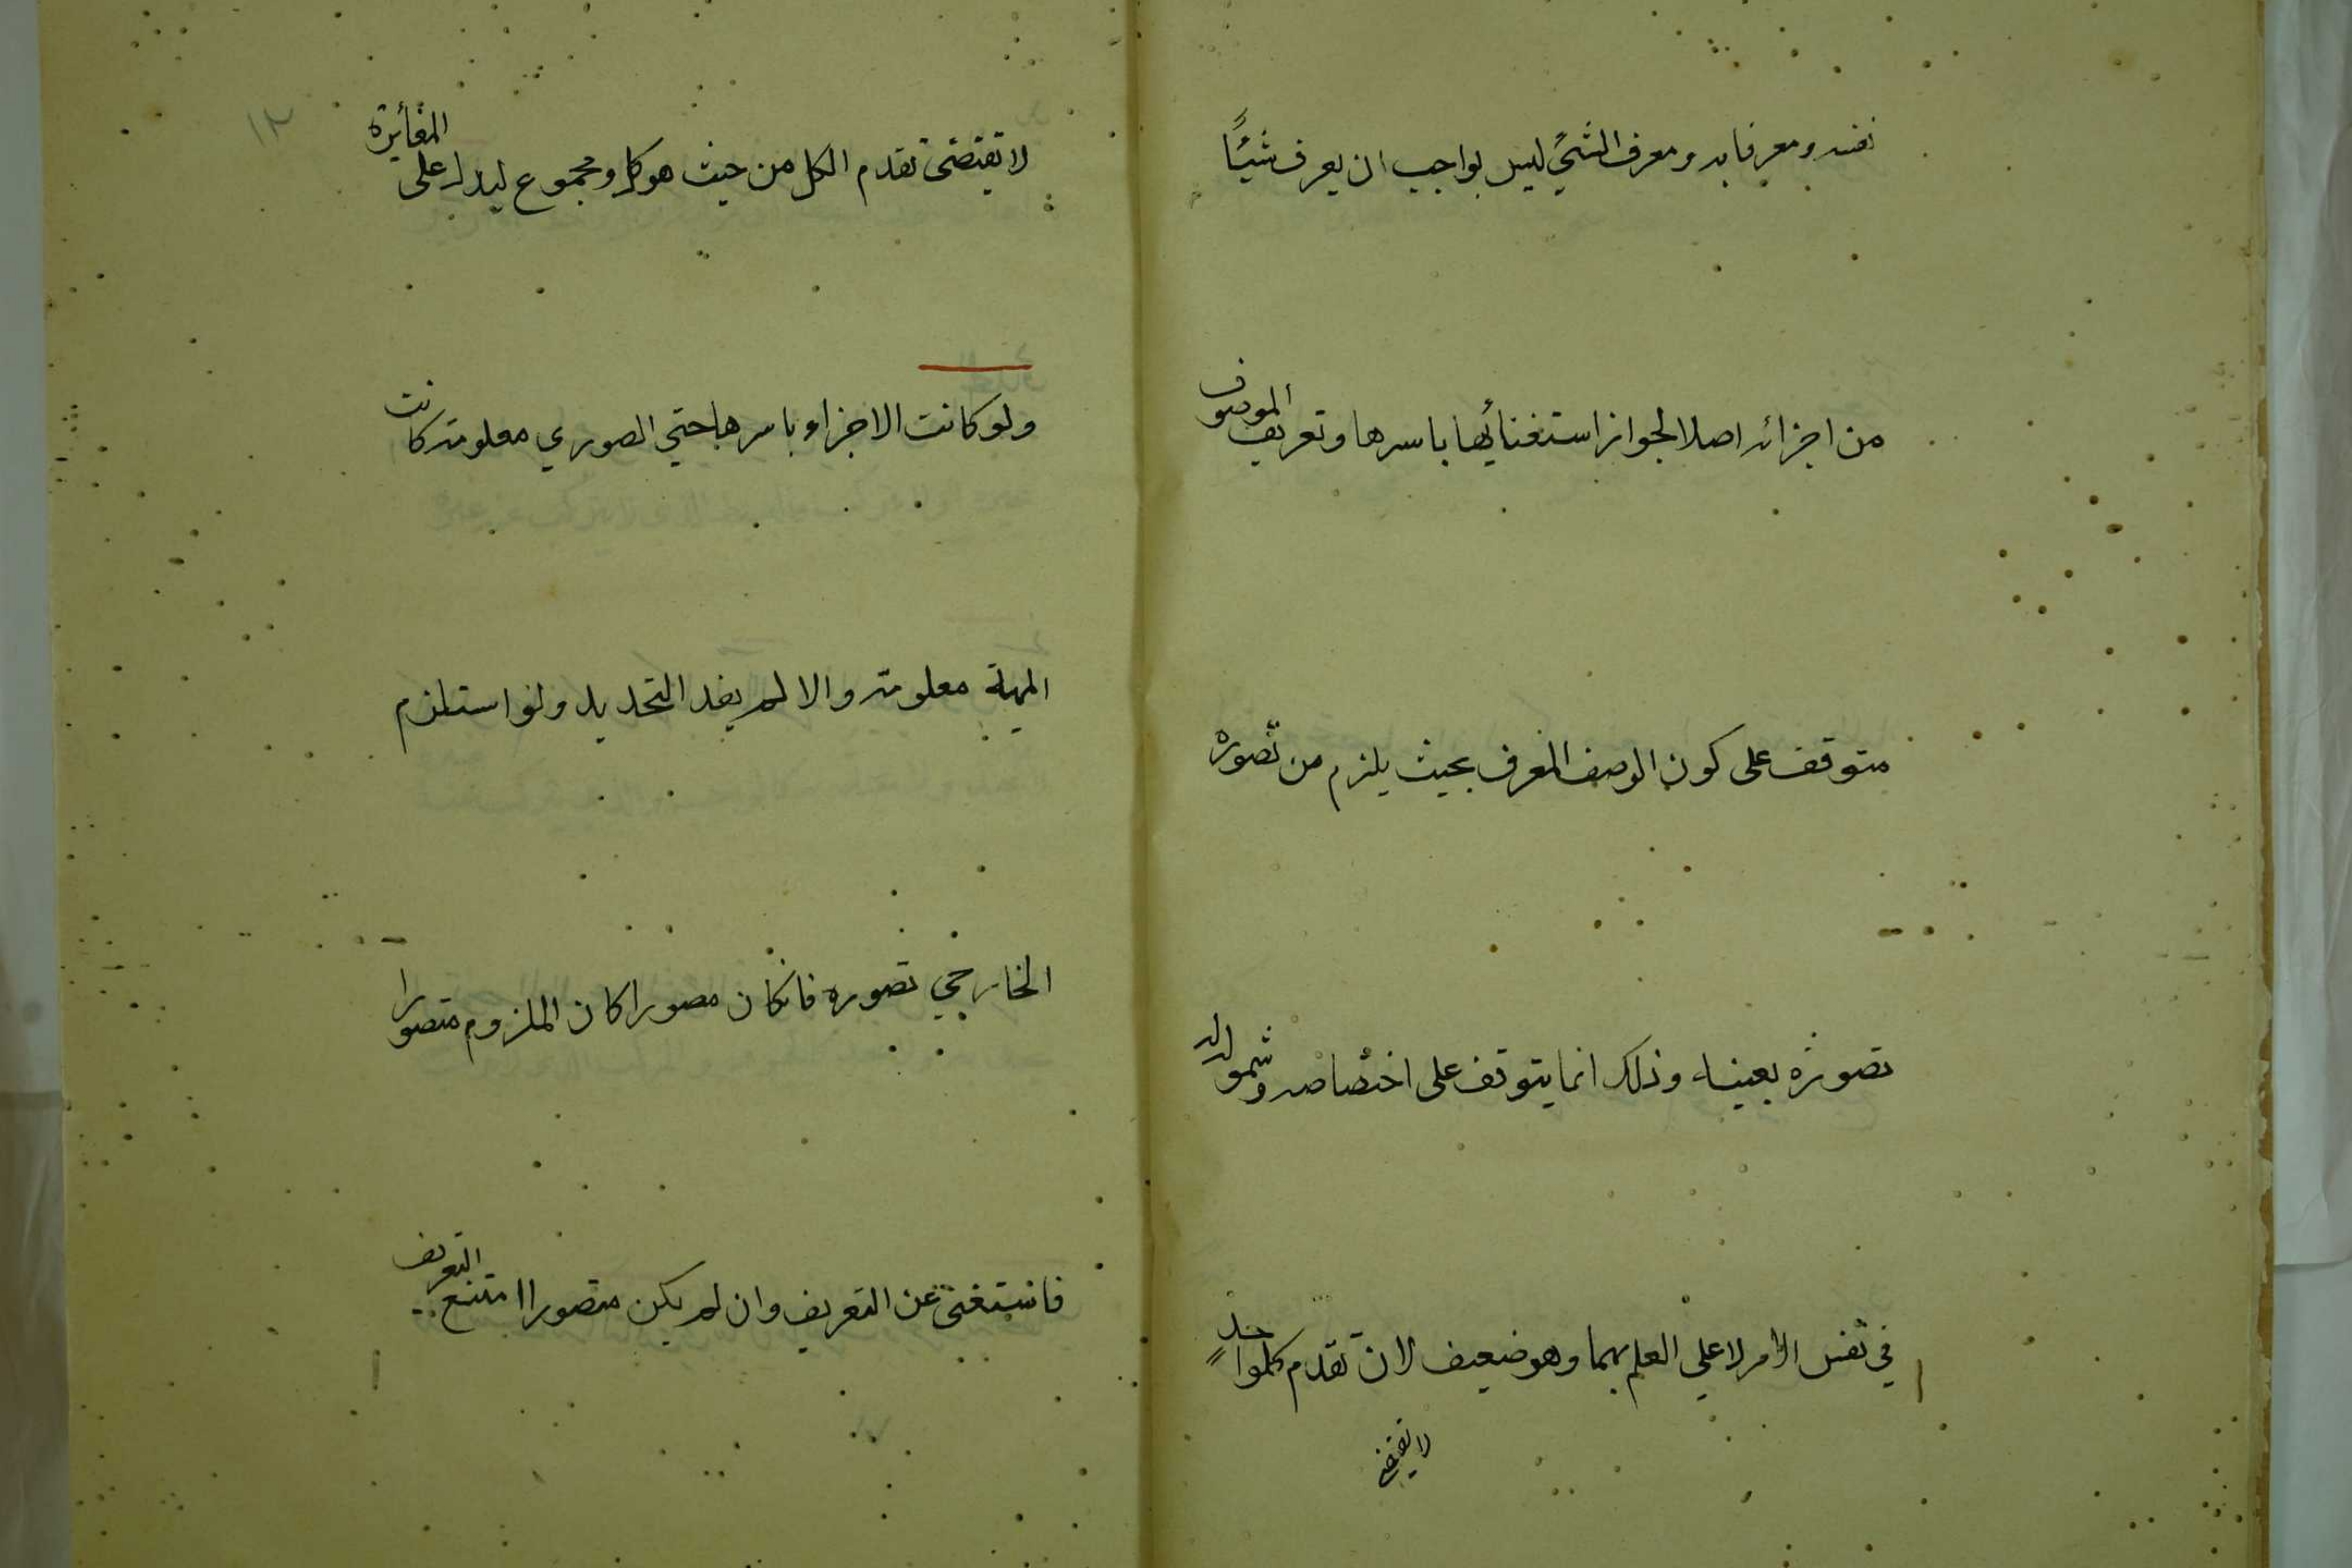 نفسه ومعرفا به ومعرف الشيء ليس بواجب ان يعرف شيئًا
من اجزائه اصلا لجواز استغنائها باسرها وتعريف الموصوف
متوقف على كون الوصف المعرف بحيث يلزم من تصوره
تصوره بعينه وذلك انما يتوقف على اختصاصه وشموله له
في نفس الامر لا علي العلم بهما وهو ضعيف لان تقدم كلواحد
لا يقتضى
لا يقتضى تقدم الكل من حيث هو كل ومجموع ليدل على المغائرة
ولو كانت الاجزاء باسرها حتي الصوري معلومة كانت
المهية معلومة والا لم يفد التحديد ولو استلزم
الخارجي تصوره فانكان مصورا كان الملزوم متصورا
فاستغنى عن التعريف وان لم يكن متصورا امتنع التعريف
١٢